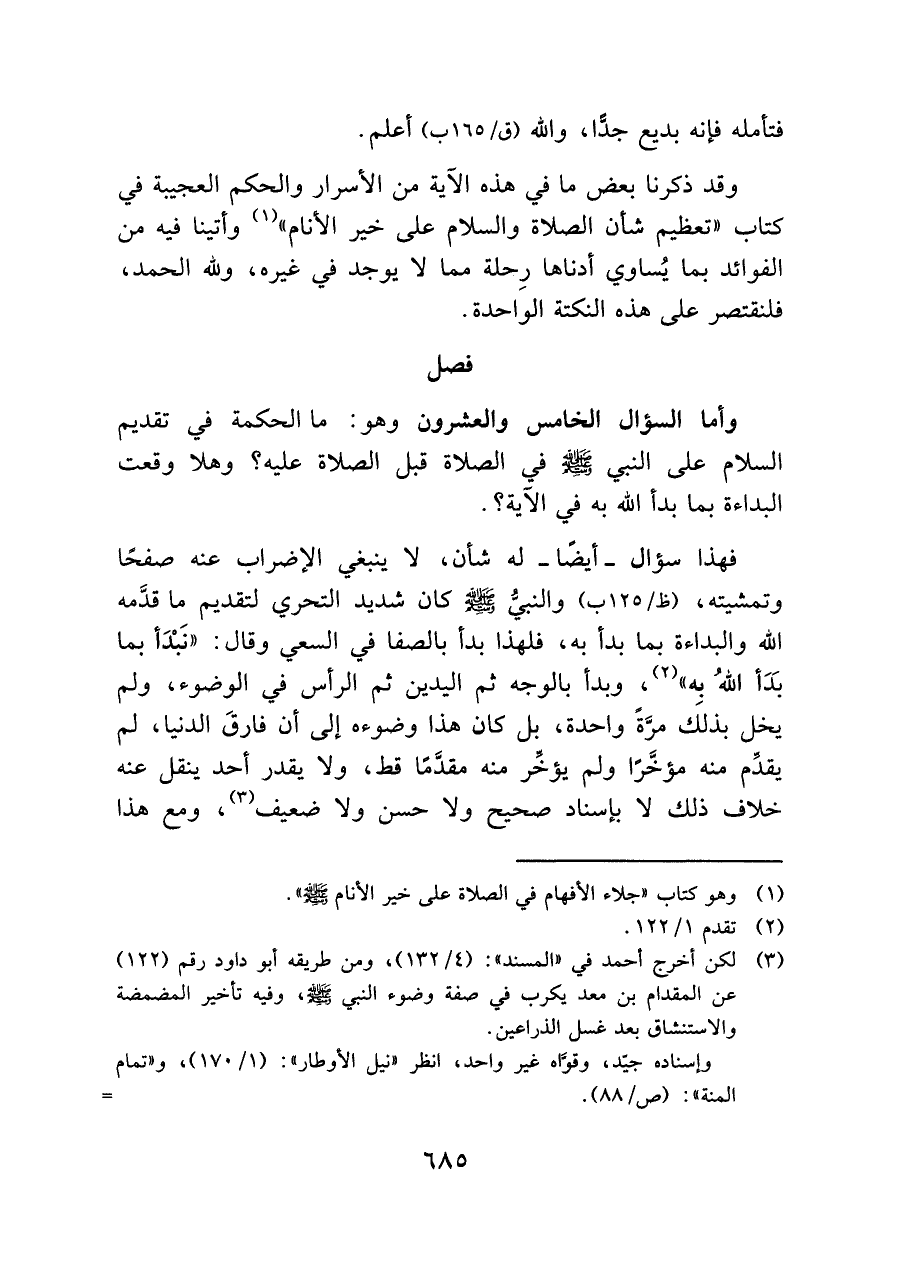 فتأمله فإنه بديع جدًّا، والله (ق/١٦٥ب) أعلم.
وقد ذكرنا بعض ما في هذه الآية من الأسرار والحكم العجيبة في
كتاب «تعظيم شأن الصلاة والسلام على خير الأنام»(١) وأتينا فيه من
الفوائد بما يُساوي أدناها رِحلة مما لا يوجد في غيره، ولله الحمد،
فلنقتصر على هذه النكتة الواحدة.
فصل
وأما السؤال الخامس والعشرون وهو: ما الحكمة في تقديم
السلام على النبي ﷺ في الصلاة قبل الصلاة عليه؟ وهلا وقعت
البداءة بما بدأ الله به في الآية؟.
فهذا سؤال ـ أيضًا ـ له شأن، لا ينبغي الإضراب عنه صفحًا
وتمشيته، (ظ/١٢٥ب) والنبيُّ ﷺ كان شديد التحري لتقديم ما قدَّمه
الله والبداءة بما بدأ به، فلهذا بدأ بالصفا في السعي وقال: «نَبْدَأ بما
بَدَأ اللهُ بِه»(٢)، وبدأ بالوجه ثم اليدين ثم الرأس في الوضوء، ولم
يخل بذلك مرَّةً واحدة، بل كان هذا وضوءه إلى أن فارقَ الدنيا، لم
يقدِّم منه مؤخَّرًا ولم يؤخِّر منه مقدَّمًا قط، ولا يقدر أحد ينقل عنه
خلاف ذلك لا بإسناد صحيح ولا حسن ولا ضعيف(٣)، ومع هذا
(١) وهو كتاب «جلاء الأفهام في الصلاة على خير الأنام ﷺ».
(٢) تقدم ١/ ١٢٢.
(٣) لكن أخرج أحمد في «المسند»: (٤/ ١٣٢)، ومن طريقه أبو داود رقم (١٢٢)
عن المقدام بن معد يكرب في صفة وضوء النبي ﷺ، وفيه تأخير المضمضة
والاستنشاق بعد غسل الذراعين.
وإسناده جيّد، وقوَّاه غير واحد، انظر «نيل الأوطار»: (١/ ١٧٠)، و«تمام
المنة»: (ص/ ٨٨). =
٦٨٥